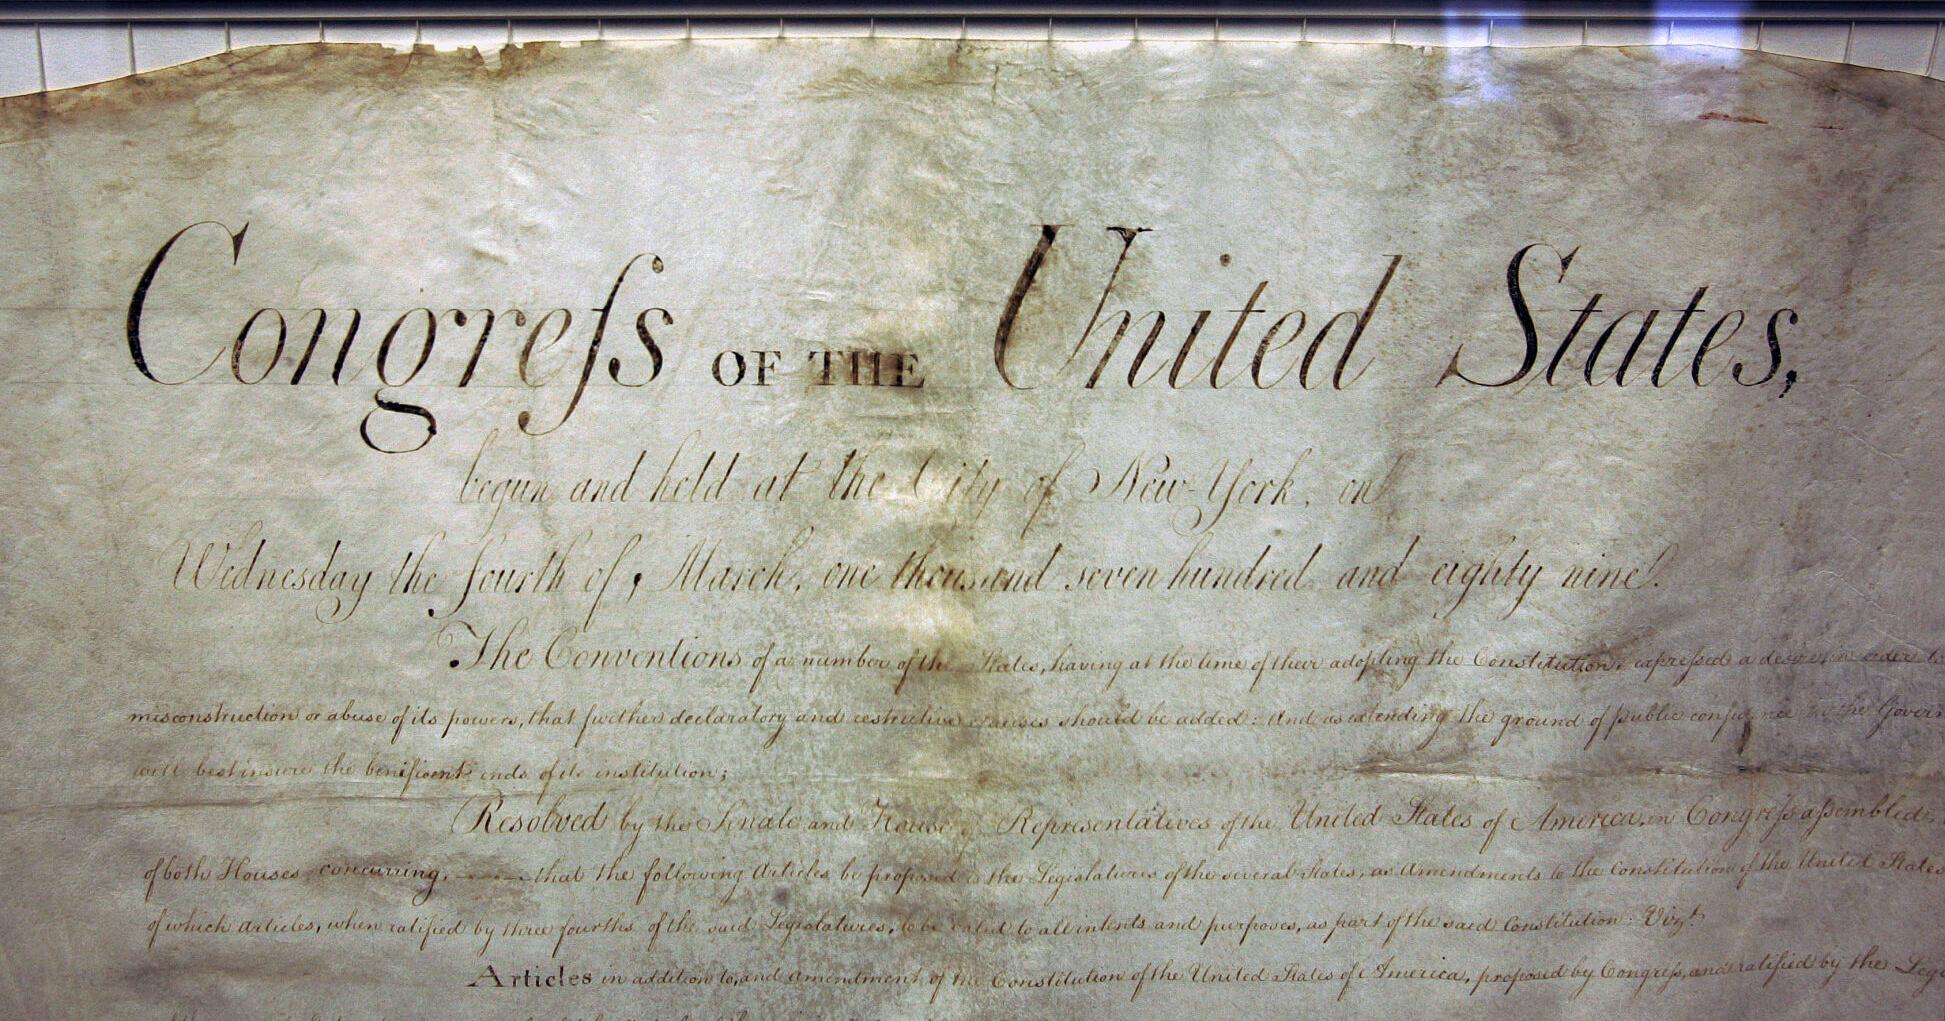 Congreſs OF THE United States,
begun and held at the City of New-York, on
Wednesday the fourth of March, one thousand seven hundred and eighty nine.
The Conventions of a number of the States, having at the time of their adopting the Constitution, expreſsed a desire in order to
misconstruction or abuse of its powers, that further declaratory and restrictive clauses should be added: And as extending the ground of public confidence in the Govern
will best insure the beneficent ends of its institution;
Resolved by the Senate and House of Representatives of the United States of America, in Congreſs aſsembled,
of both Houses concurring, that the following Articles be proposed to the Legislatures of the several States, as Amendments to the Constitution of the United States
of which Articles, when ratified by three fourths of the said Legislatures, to be valid to all intents and purposes, as part of the said Constitution: Vizt
Articles in addition to, and amendment of the Constitution of the United States of America, proposed by Congreſs, and ratified by the Leg